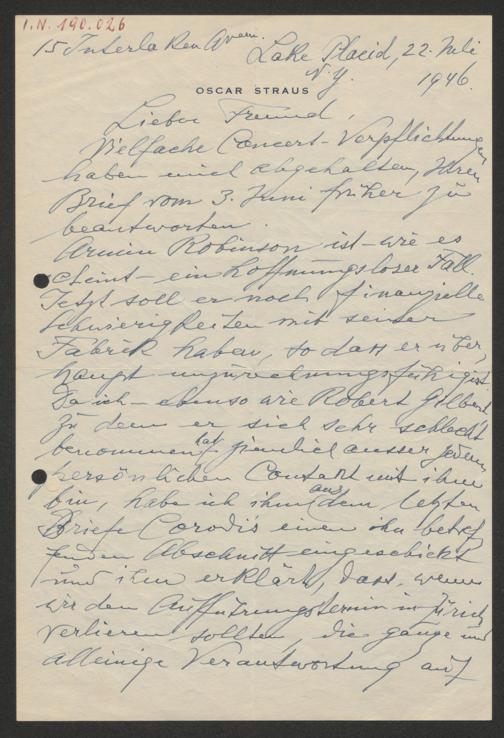 I.N. 190.026
15 Interlaken Aven.
Lake Placid, 22. Juli
N.Y. 1946.
OSCAR STRAUS
Lieber Freund,
Vielfache Concert-Verpflichtungen
haben mich abgehalten, Ihren
Brief vom 3. Juni früher zu
beantworten.
Armin Robinson ist – wie es
scheint – ein hoffnungsloser Fall.
Jetzt soll er noch finanzielle
Schwierigkeiten mit seiner
Fabrik haben, so dass er über,
haupt unzurechnungsfähig ist
Da ich – ebenso wie Robert Gilbert
zu dem er sich sehr schlecht
benommen hat ziemlich ausser jedem
persönlichen Contakt mit ihm
bin, habe ich ihm aus dem letzten
Briefe Corodis einen ihn betref
fenden Abschnitt eingeschickt
und ihm erklärt, dass, wenn
wir den Aufführungstermin in Zürich
verlieren sollten, die ganze und
alleinige Verantwortung auf